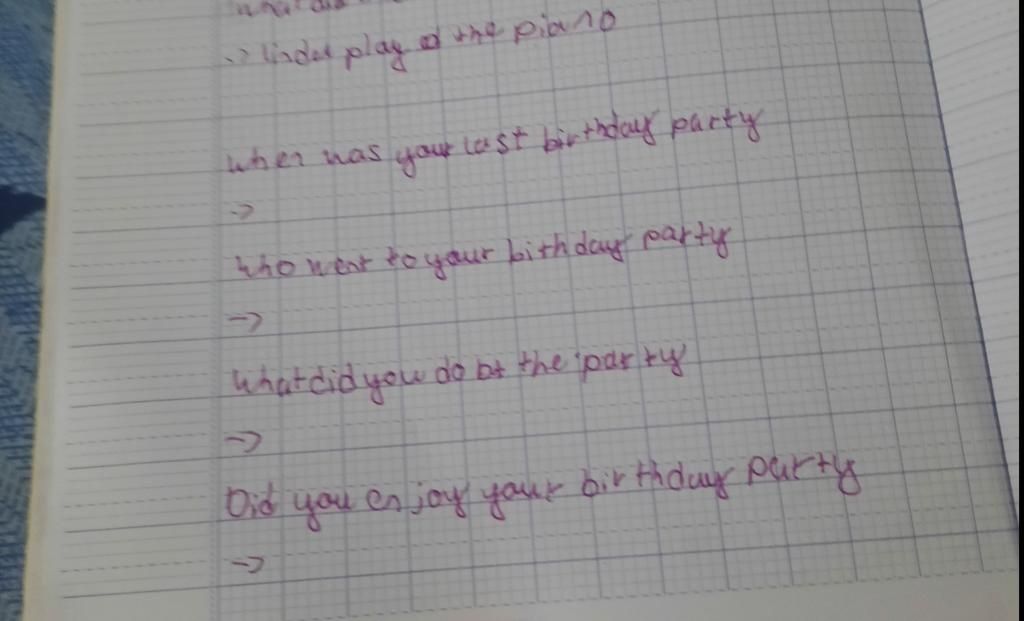 what did
-> Linda play ed the piano
when was your last birthday party
->
who went to your birthday party
->
what did you do at the party
->
Did you enjoy your birthday party
->